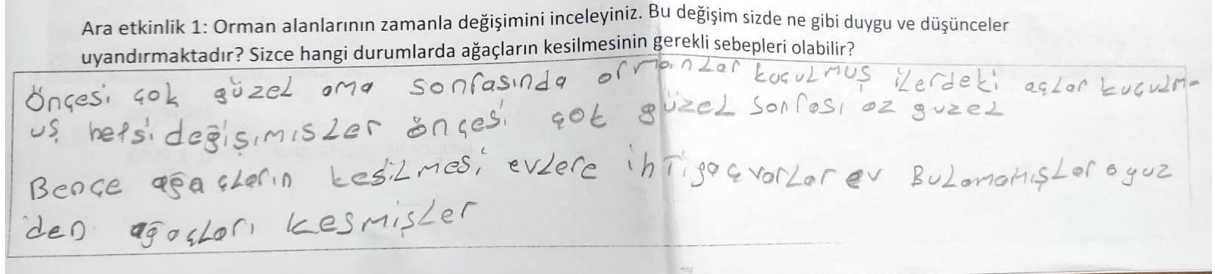 Ara etkinlik 1: Orman alanlarının zamanla değişimini inceleyiniz. Bu değişim sizde ne gibi duygu ve düşünceler
uyandırmaktadır? Sizce hangi durumlarda ağaçların kesilmesinin gerekli sebepleri olabilir?
Önçesi çok güzel ama sonrasında ormanlar kuçulmuş ilerdeki açlar kuçulm-
uş hepsi değişimişler önçesi çok güzel sonrası az guzel
Bençe ağaçların kesilmesi, evlere ihtigaç varlar ev Bulamamışlar oyuz
den ağaçları kesmişler